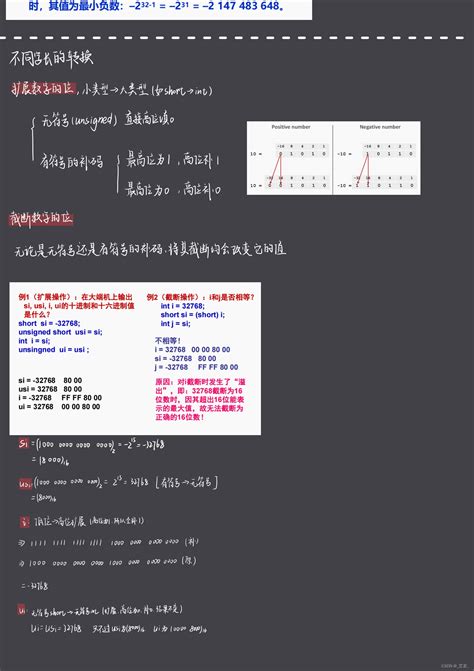 时，其值为最小负数：–2³²⁻¹ = –2³¹ = –2 147 483 648。
不同字长的转换
扩展数字的位，小类型→大类型 (如short→int)
无符号(unsigned) 直接高位填0
有符号的补码
最高位为1，高位补1
最高位为0，高位补0
Positive number
Negative number
-16 8 4 2 1
-16 8 4 2 1
10 = 0 1 0 1 0
-10 = 1 0 1 1 0
-32 16 8 4 2 1
-32 16 8 4 2 1
10 = 0 0 1 0 1 0
截断数字的位
无论是无符号还是有符号的补码，将其截断均会改变它的值
例1（扩展操作）：在大端机上输出
si, usi, i, ui的十进制和十六进制值
是什么？
short si = -32768;
unsigned short usi = si;
int i = si;
unsingned ui = usi ;
si = -32768 80 00
usi = 32768 80 00
i = -32768 FF FF 80 00
ui = 32768 00 00 80 00
例2（截断操作）：i和j是否相等？
int i = 32768;
short si = (short) i;
int j = si;
不相等！
i = 32768 00 00 80 00
si = -32768 80 00
j = -32768 FF FF 80 00
原因：对i截断时发生了“溢
出”，即：32768截断为16
位数时，因其超出16位能表
示的最大值，故无法截断为
正确的16位数！
si = (1000 0000 0000 0000)₂ = -2¹⁵ = -32768
= (8000)₁₆
usi = (1000 0000 0000 0000)₂ = 2¹⁵ = 32768 [有符号→无符号]
= (8000)₁₆
i
⇒ 1111 1111 1111 1111 1000 0000 0000 0000 (补)
⇒ 1000 0000 0000 0000 1000 0000 0000 0000 (原)
= -32768
ui
ui = usi = 32768